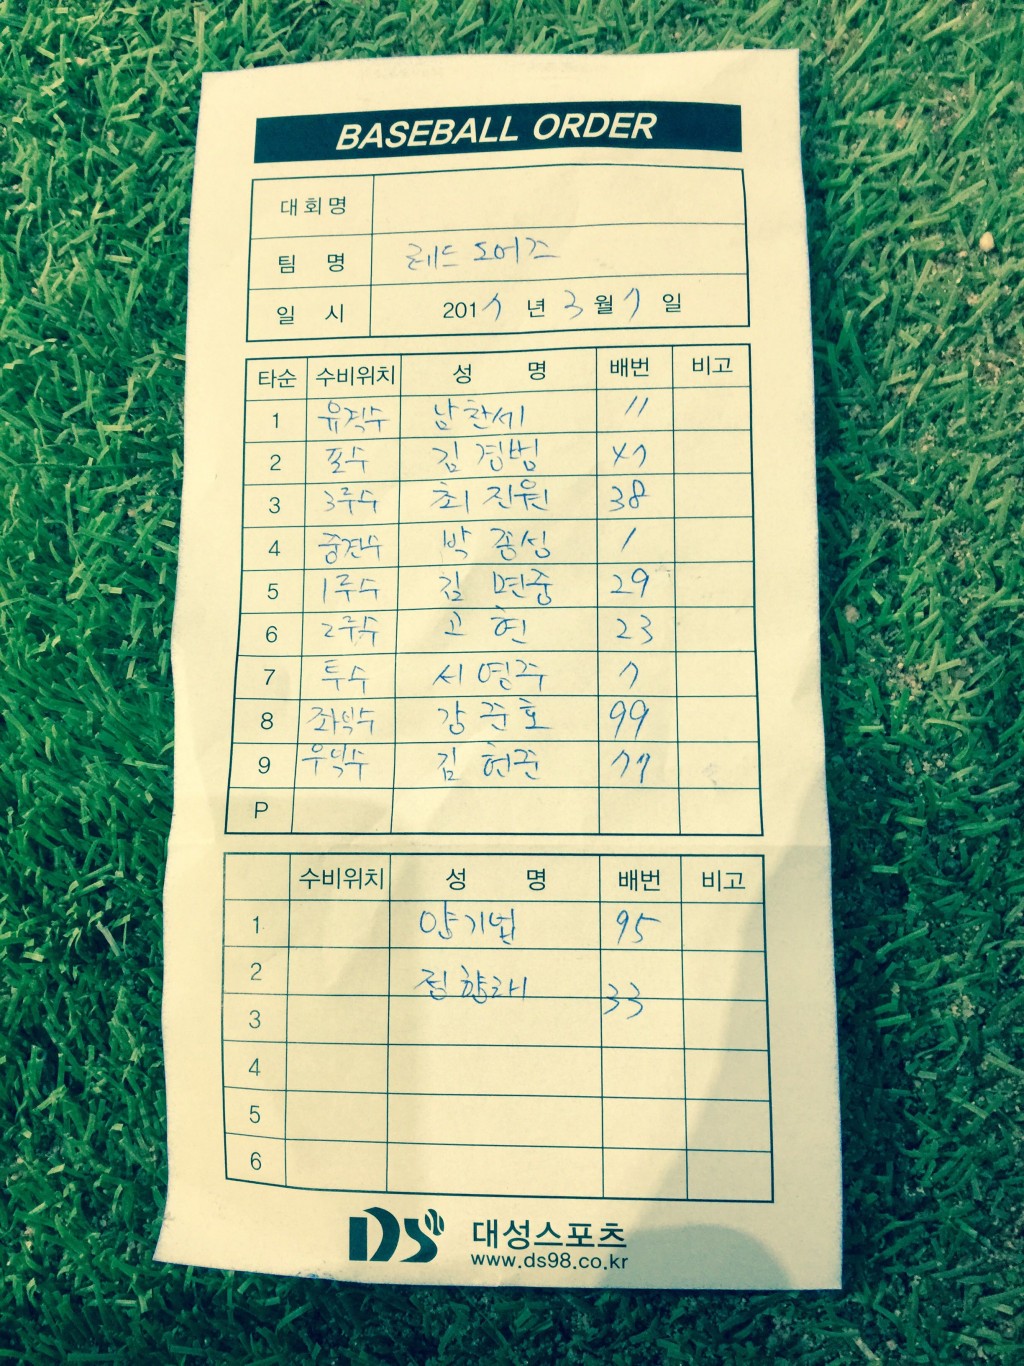 BASEBALL ORDER
대회명
팀 명 레드 도어즈
일 시 2015 년 3 월 7 일
타순 수비위치 성 명 배번 비고
1 유격수 남찬세 11
2 포수 김경범 47
3 3루수 최진원 38
4 중견수 박종성 1
5 1루수 김면중 29
6 2루수 고현 23
7 투수 서영주 7
8 좌익수 강준호 99
9 우익수 김현준 77
P
수비위치 성 명 배번 비고
1 양기법 95
2 33
3
4
5
6
DS 대성스포츠
www.ds98.co.kr